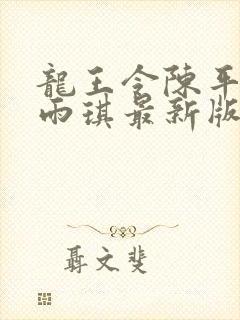 龍王令陳平
雨琪最新版
聶文斐